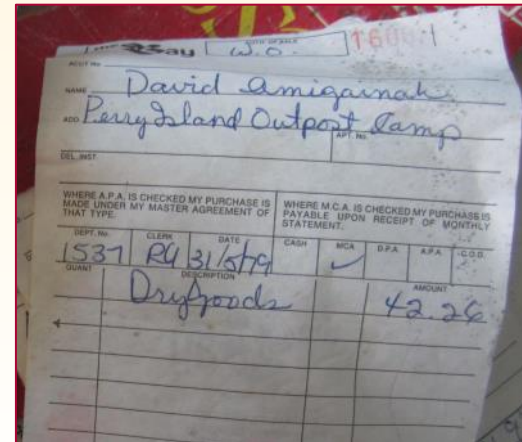 the Bay W.O. 1600
ACCT No.
NAME David Amigainak
ADD. Perry Island Outpost Camp
APT. No.
DEL. INST.
WHERE A.P.A. IS CHECKED MY PURCHASE IS MADE UNDER MY MASTER AGREEMENT OF THAT TYPE.
WHERE M.C.A. IS CHECKED MY PURCHASE IS PAYABLE UPON RECEIPT OF MONTHLY STATEMENT.
DEPT. No. CLERK DATE CASH MCA D.P.A. A.P.A. C.O.D.
1537 RG 31/5/79 ✓
QUANT DESCRIPTION AMOUNT
Dry Goods 42.26